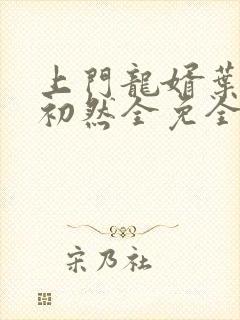 上門龍婿葉
初然全免全
宋乃社